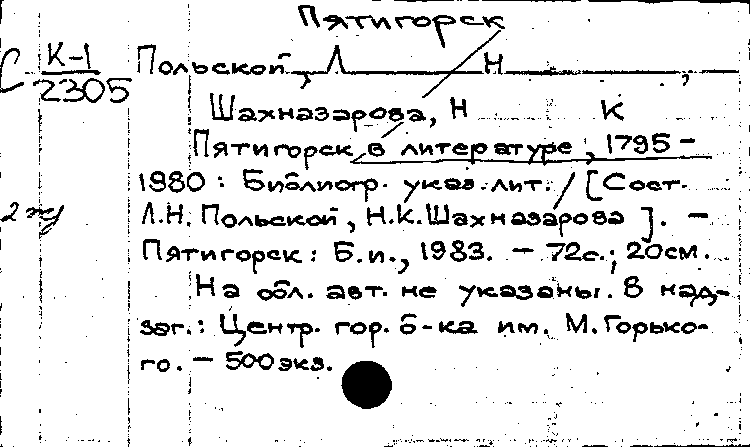 Пятигорск
С К-1 Польской, Л Н ,
2305
Шахназарова, Н К
Пятигорск в литературе, 1795 -
1980 : Библиогр. указ. лит. / [Сост.
Л.Н. Польской, Н.К. Шахназарова ]. -
Пятигорск : Б.и., 1983. - 72с.; 20см.
На обл. авт. не указаны. В над-
заг. : Центр. гор. б-ка им. М. Горько-
го. - 500 экз.